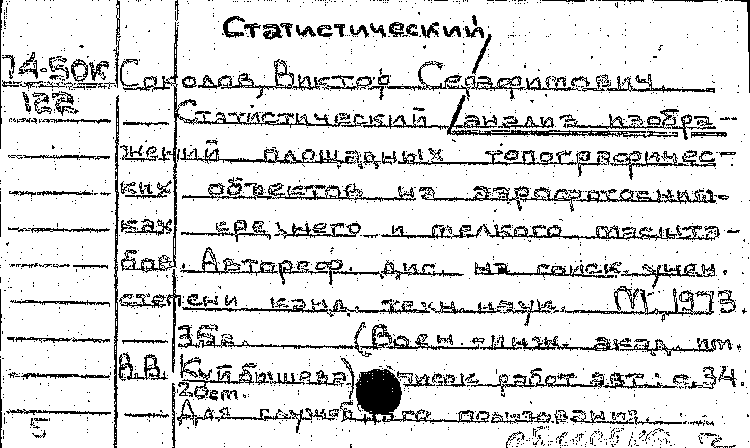 Статистический
74-50к Соколов, Виктор Серафимович.
122 Статистический анализ изобра-
жений площадных топографичес-
ких объектов на аэрофотосним-
ках среднего и мелкого масшта-
бов. Автореф. дис. на соиск. учен.
степени канд. техн. наук. М., 1973.
35с. (Воен.-инж. акад. им.
В.В. Куйбышева) Список работ авт.: с.34.
20см.
Для служебного пользования.
5